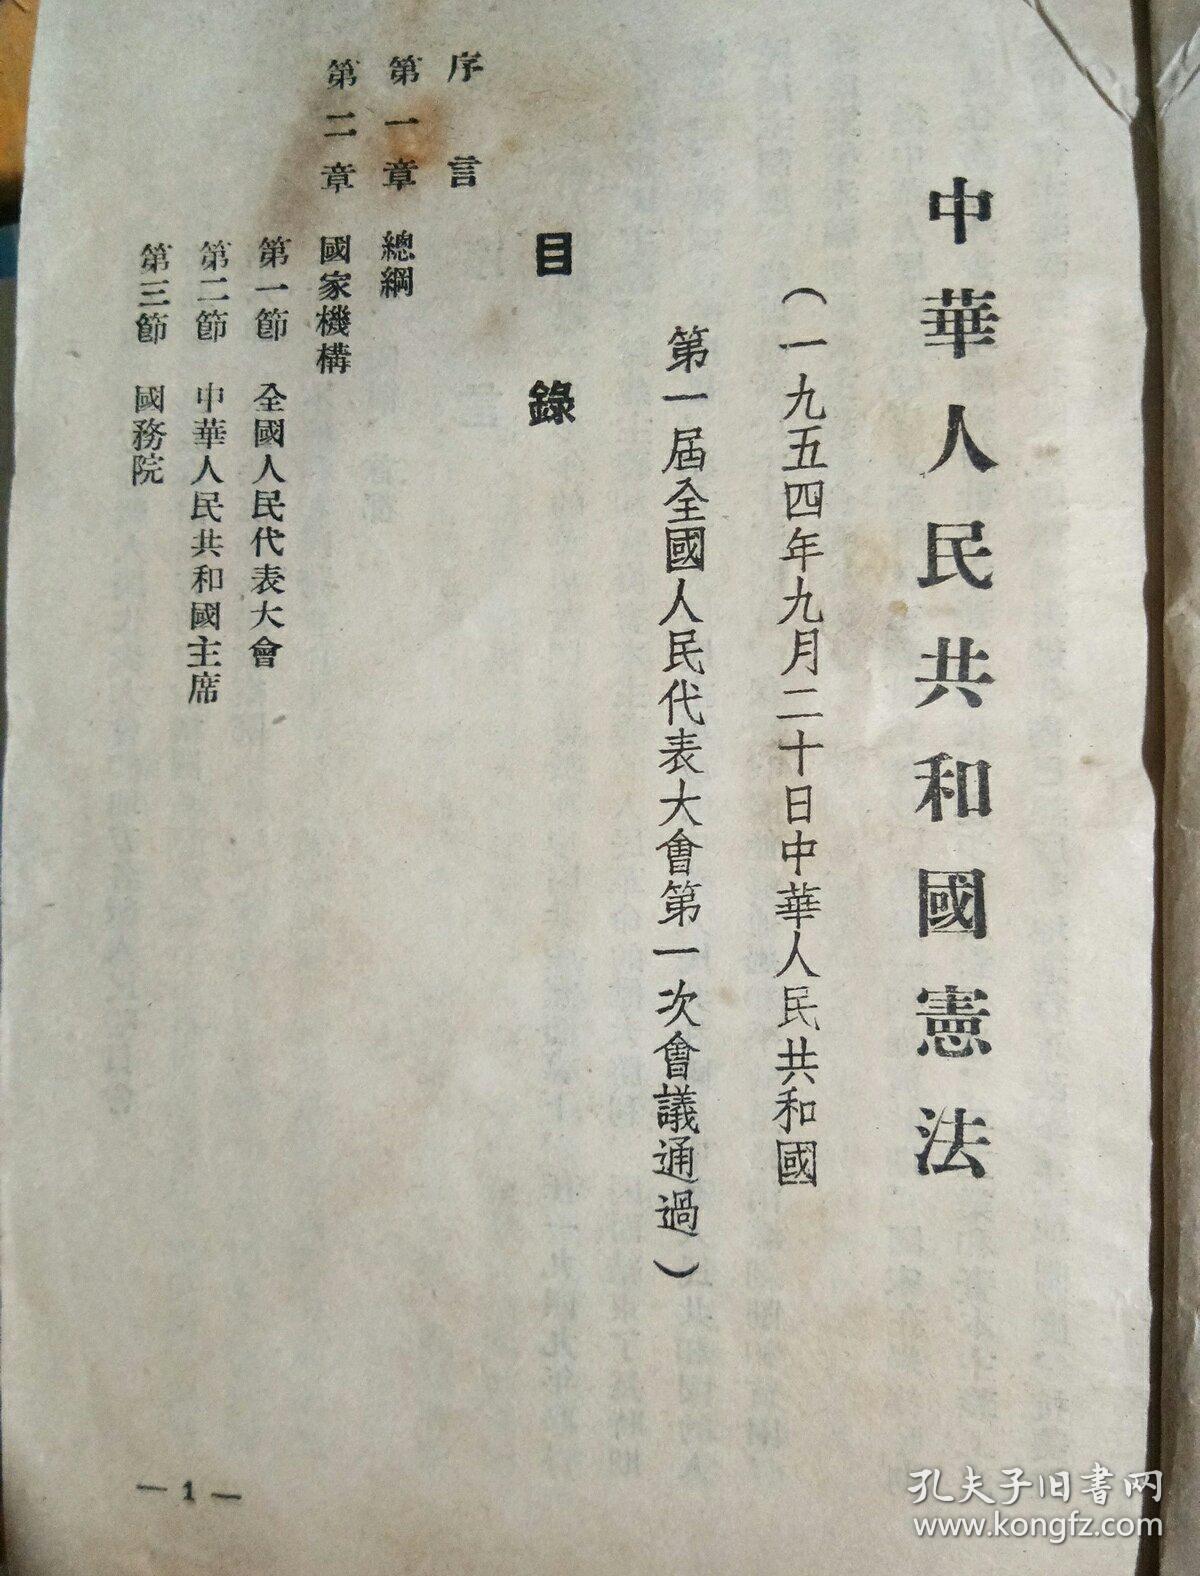 中華人民共和國憲法
（一九五四年九月二十日中華人民共和國
第一屆全國人民代表大會第一次會議通過）
目錄
序言
第一章 總綱
第二章 國家機構
第一節 全國人民代表大會
第二節 中華人民共和國主席
第三節 國務院
— 1 —
孔夫子旧书网
www.kongfz.com